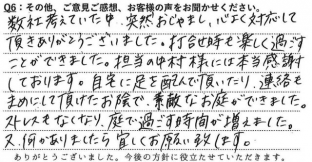 Q6：その他、ご意見ご感想、お客様の声をお聞かせください。
数社考えていた中、突然おじゃまし、心よく対応して
頂きありがとうございました。打合せ時も楽しく過ごす
ことができました。担当の中村様には本当感謝
しております。自宅に足を運んで頂いたり、連絡も
まめにして頂けたお陰で、素敵なお庭ができました。
ストレスもなくなり、庭で過ごす時間が増えました。
又、何かありましたら宜しくお願い致します。
ありがとうございました。今後の方針に役立たせていただきます。